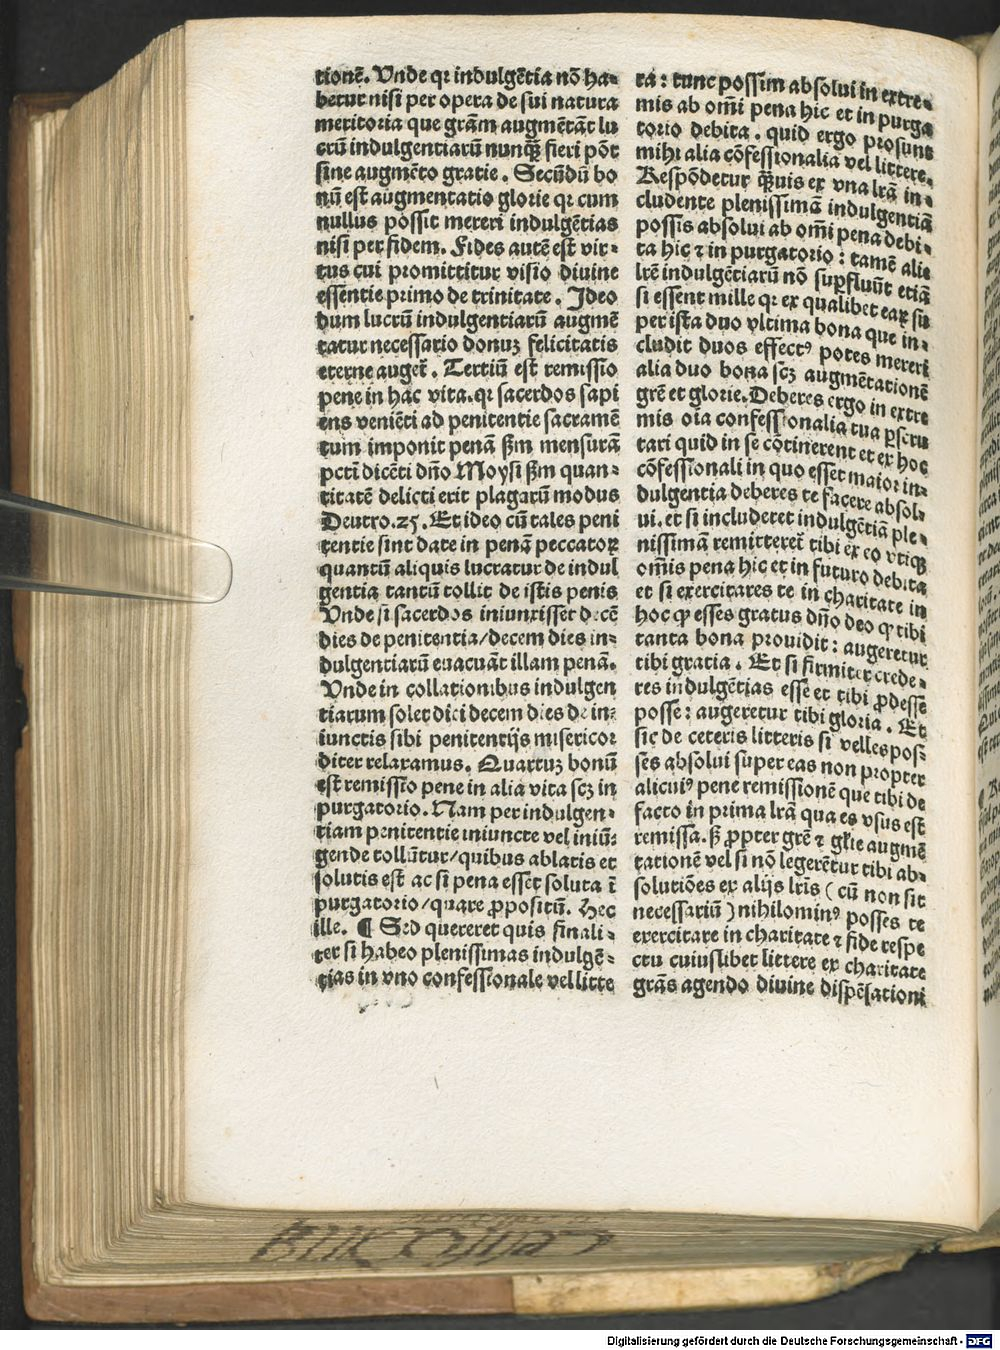 tionē. Vnde qꝛ indulgētia nō ha-
betur nisi per opera de sui natura
meritoria que grām augmētāt lu
crū indulgentiarū nunqꝫ̄ fieri pōt
sine augmēto gratie. Secūdū bo
nū est augmentatio glorie qꝛ cum
nullus possit mereri indulgētias
nisi per fidem. Fides autē est vir-
tus cui promittitur visio diuine
essentie primo de trinitate. Ideo
dum lucrū indulgentiarū augmē
tatur necessario donuꝫ felicitatis
eterne auget̄. Tertiū est remissio
pene in hac vita. qꝛ sacerdos sapi
ens veniēti ad penitentie sacramē
tum imponit penā ẜm mensurā
pctī dicēti dn̄o Moysi ẜm quan-
titatē delicti erit plagarū modus
Deutro.25. Et ideo cū tales peni
tentie sint date in penā peccatoꝝ
quantū aliquis lucratur de indul
gentia tantū tollit de istis penis
Vnde si sacerdos iniunxisset decē
dies de penitentia/decem dies in-
dulgentiarū euacuāt illam penā.
Vnde in collationibus indulgen
tiarum solet dici decem dies de in-
iunctis sibi penitentijs misericor
diter relaxamus. Quartuꝫ bonū
est remissio pene in alia vita scꝫ in
purgatorio. Nam per indulgen-
tiam penitentie iniuncte vel iniū-
gende tollūtur/quibus ablatis et
solutis est ac si pena esset soluta ī
purgatorio/quare ꝓpositū. Hec
ille. ¶ Sed quereret quis finali-
ter si habeo plenissimas indulgē-
tias in vno confessionale vel litte
ra: tunc possim absolui in extre-
mis ab om̄i pena hic et in purga
torio debita. quid ergo prosunt
mihi alia cōfessionalia vel littere.
Respōdetur qꝫ̄uis ex vna lrā in-
cludente plenissimā indulgentiā
possis absolui ab om̄i pena debi-
ta hic ⁊ in purgatorio: tamē alie
lrē indulgētiarū nō suꝑfluūt etiā
si essent mille qꝛ ex qualibet eaꝝ su
per ista duo vltima bona que in-
cludit duos effectꝰ potes mereri
alia duo bona scꝫ augmētationē
grē et glorie. Deberes ergo in extre
mis oīa confessionalia tua ꝑscru
tari quid in se cōtinerent et ex hoc
cōfessionali in quo esset maior in-
dulgentia deberes te facere absol
ui. et si includeret indulgētiā ple-
nissimā remitteret̄ tibi ex eo vtiqꝫ
om̄is pena hic et in futuro debita
et si exercitares te in charitate in
hoc ꝙ esses gratus dn̄o deo ꝙ tibi
tanta bona prouidit: augeretur
tibi gratia. Et si firmiter crede-
res indulgētias esse et tibi ꝓdesse
posse: augeretur tibi gloria. Et
sic de ceteris litteris si velles pos-
ses absolui super eas non propter
alicuiꝰ pene remissionē que tibi de
facto in prima lrā qua es vsus est
remissa. ẜ ꝓpter grē ⁊ gl̄ie augmē
tationē vel si nō legerētur tibi ab-
solutiōes ex alijs lrīs (cū non sit
necessariū) nihilominꝰ posses te
exercitare in charitate ⁊ fide respe
ctu cuiuslibet littere ex charitate
grās agendo diuine dispēsationi
Digitalisierung gefördert durch die Deutsche Forschungsgemeinschaft - DFG